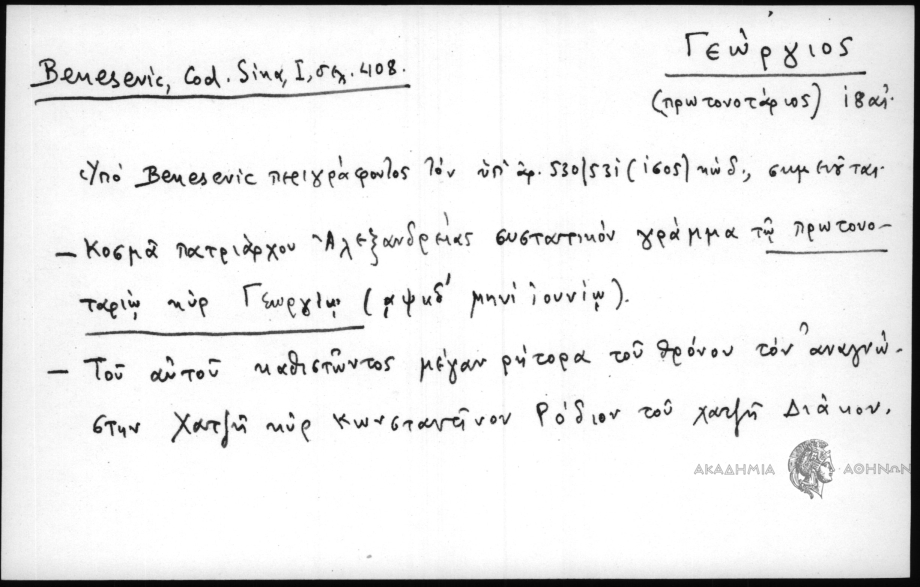 Γεώργιος
(πρωτονοτάριος) ἰ8αἰ.
Benesevic, Cod. Sina, I, σελ. 408.
Ὑπό Benesevic περιγράφοντος τόν ὑπ' ἀρ. 530/531 (1605) κώδ., σημειοῦται.
— Κοσμᾶ πατριάρχου Ἀλεξανδρείας συστατικόν γράμμα τῷ πρωτονο-
ταρίῳ κύρ Γεωργίῳ (͵αψκδ' μηνί ἰουνίῳ).
— Τοῦ αὐτοῦ καθιστῶντος μέγαν ρήτορα τοῦ θρόνου τόν ἀναγνώ-
στην Χατζῆ κύρ Κωνσταντῖνον Ρόδιον τοῦ χατζῆ Διάκον.
ΑΚΑΔΗΜΙΑ ΑΘΗΝΩΝ